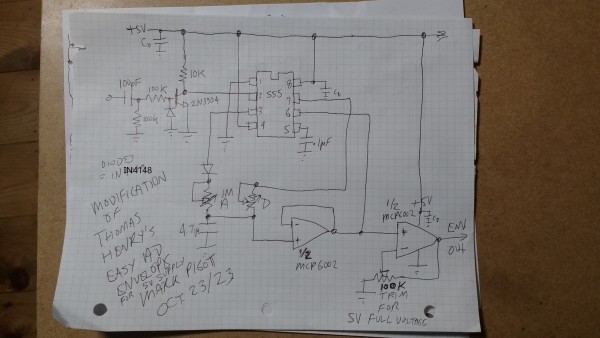 +5V
C0
10K
100pF
100K
2N3904
100K
555
1
2
3
4
8
7
6
5
C0
.1μF
DIODES
= IN IN4148
1M
A
D
4.7μ
MODIFICATION
OF
THOMAS
HENRY'S
EASY AD
ENVELOPE
FOR 5V SUPPLY
MARK PIGOT
OCT 23/23
-
+
1/2
MCP6002
1/2
MCP6002
+5V
C0
+
-
ENV
OUT
100K
TRIM
FOR
5V FULL VOLTAGE